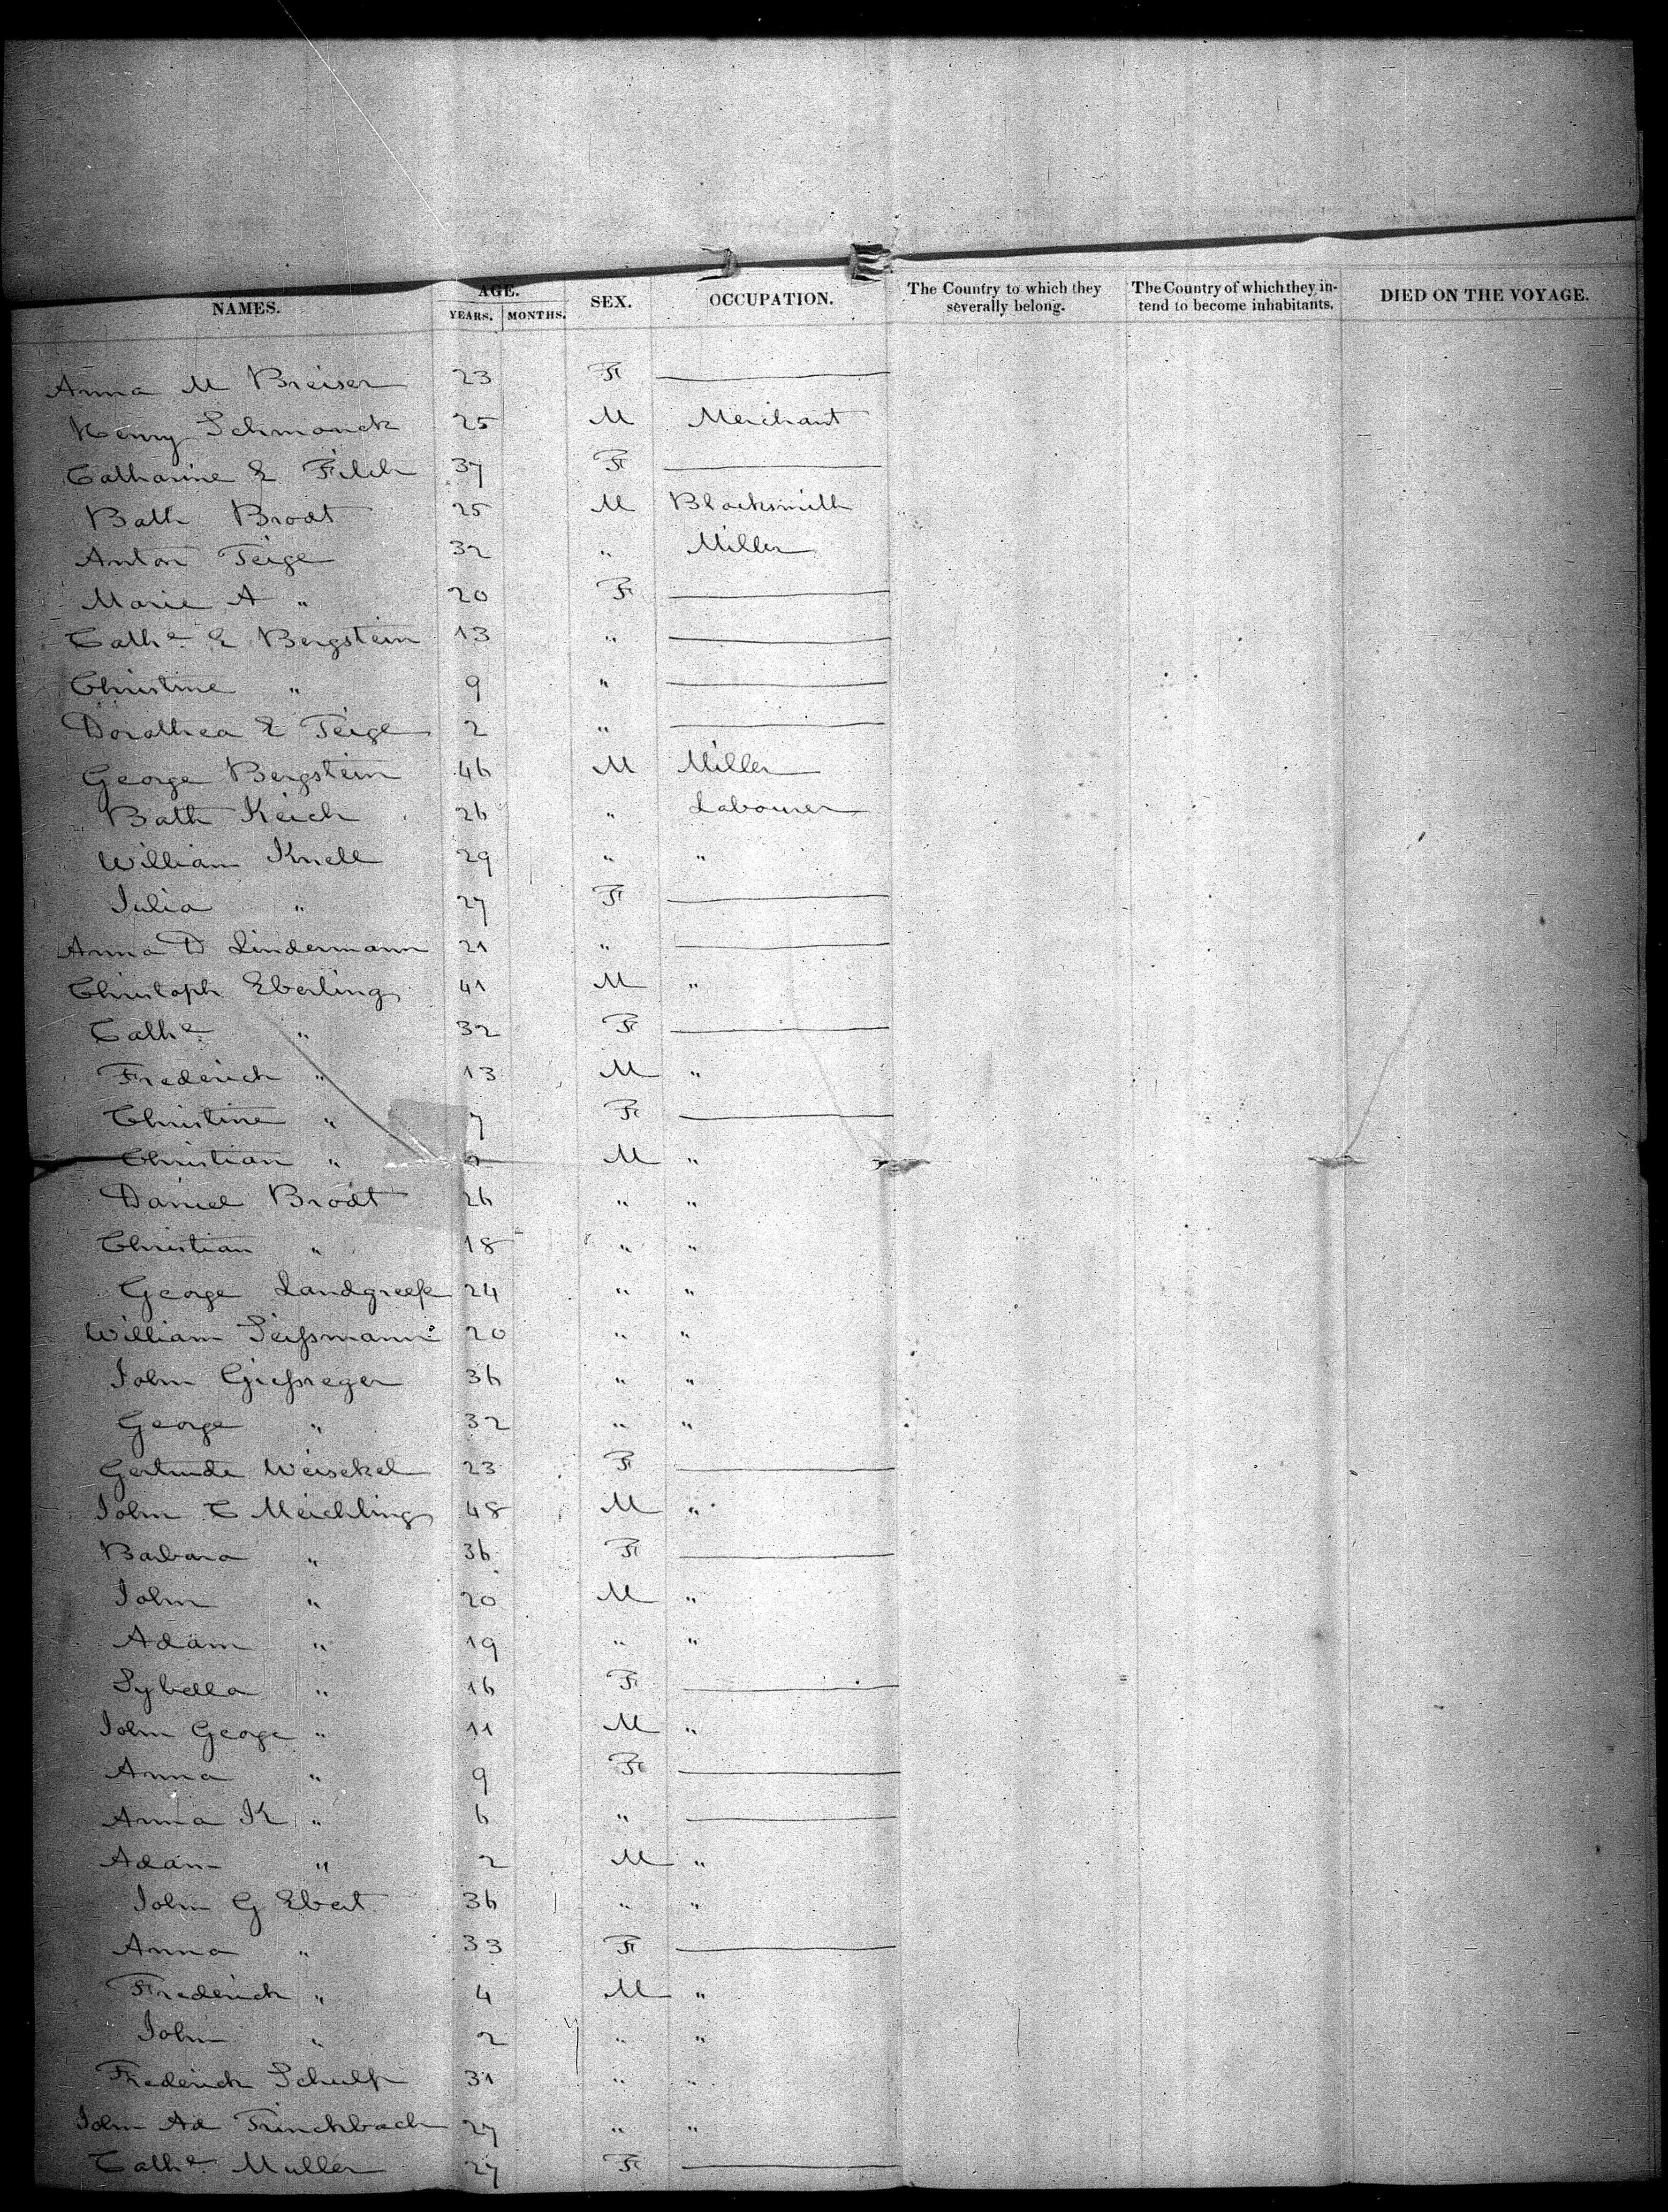 NAMES. AGE. YEARS. MONTHS. SEX. OCCUPATION. The Country to which they severally belong. The Country of which they intend to become inhabitants. DIED ON THE VOYAGE.
Anna M Breiser 23 F
Henry Schmonck 25 M Merchant
Catharine E Filch 37 F
Balth Brodt 25 M Blacksmith
Anton Teige 32 " Miller
Marie A " 20 F
Cathe E Bergstein 13 "
Christine " 9 "
Dorothea E Teige 2 "
George Bergstein 46 M Miller
Balth Keich 26 " Labourer
William Knell 29 " "
Julia " 27 F
Anna D Lindermann 21 "
Christoph Eberling 41 M "
Cathe " 32 F
Frederich " 13 M "
Christine " 7 F
Christian " M "
Daniel Brodt 26 " "
Christian " 18 " "
George Landgreefe 24 " "
William Seissmann 20 " "
John Giessreger 36 " "
George " 32 " "
Gertrude Weisekel 23 F
John C Meichling 48 M "
Barbara " 36 F
John " 20 M "
Adam " 19 " "
Sybella " 16 F
John George " 11 M "
Anna " 9 F
Anna K " 6 "
Adam " 2 M "
John G Ebert 36 " "
Anna " 33 F
Frederich " 4 M "
John " 2 " "
Frederich 31 " "
John Ad Trinchbach 27 " "
Cathe Muller 27 F